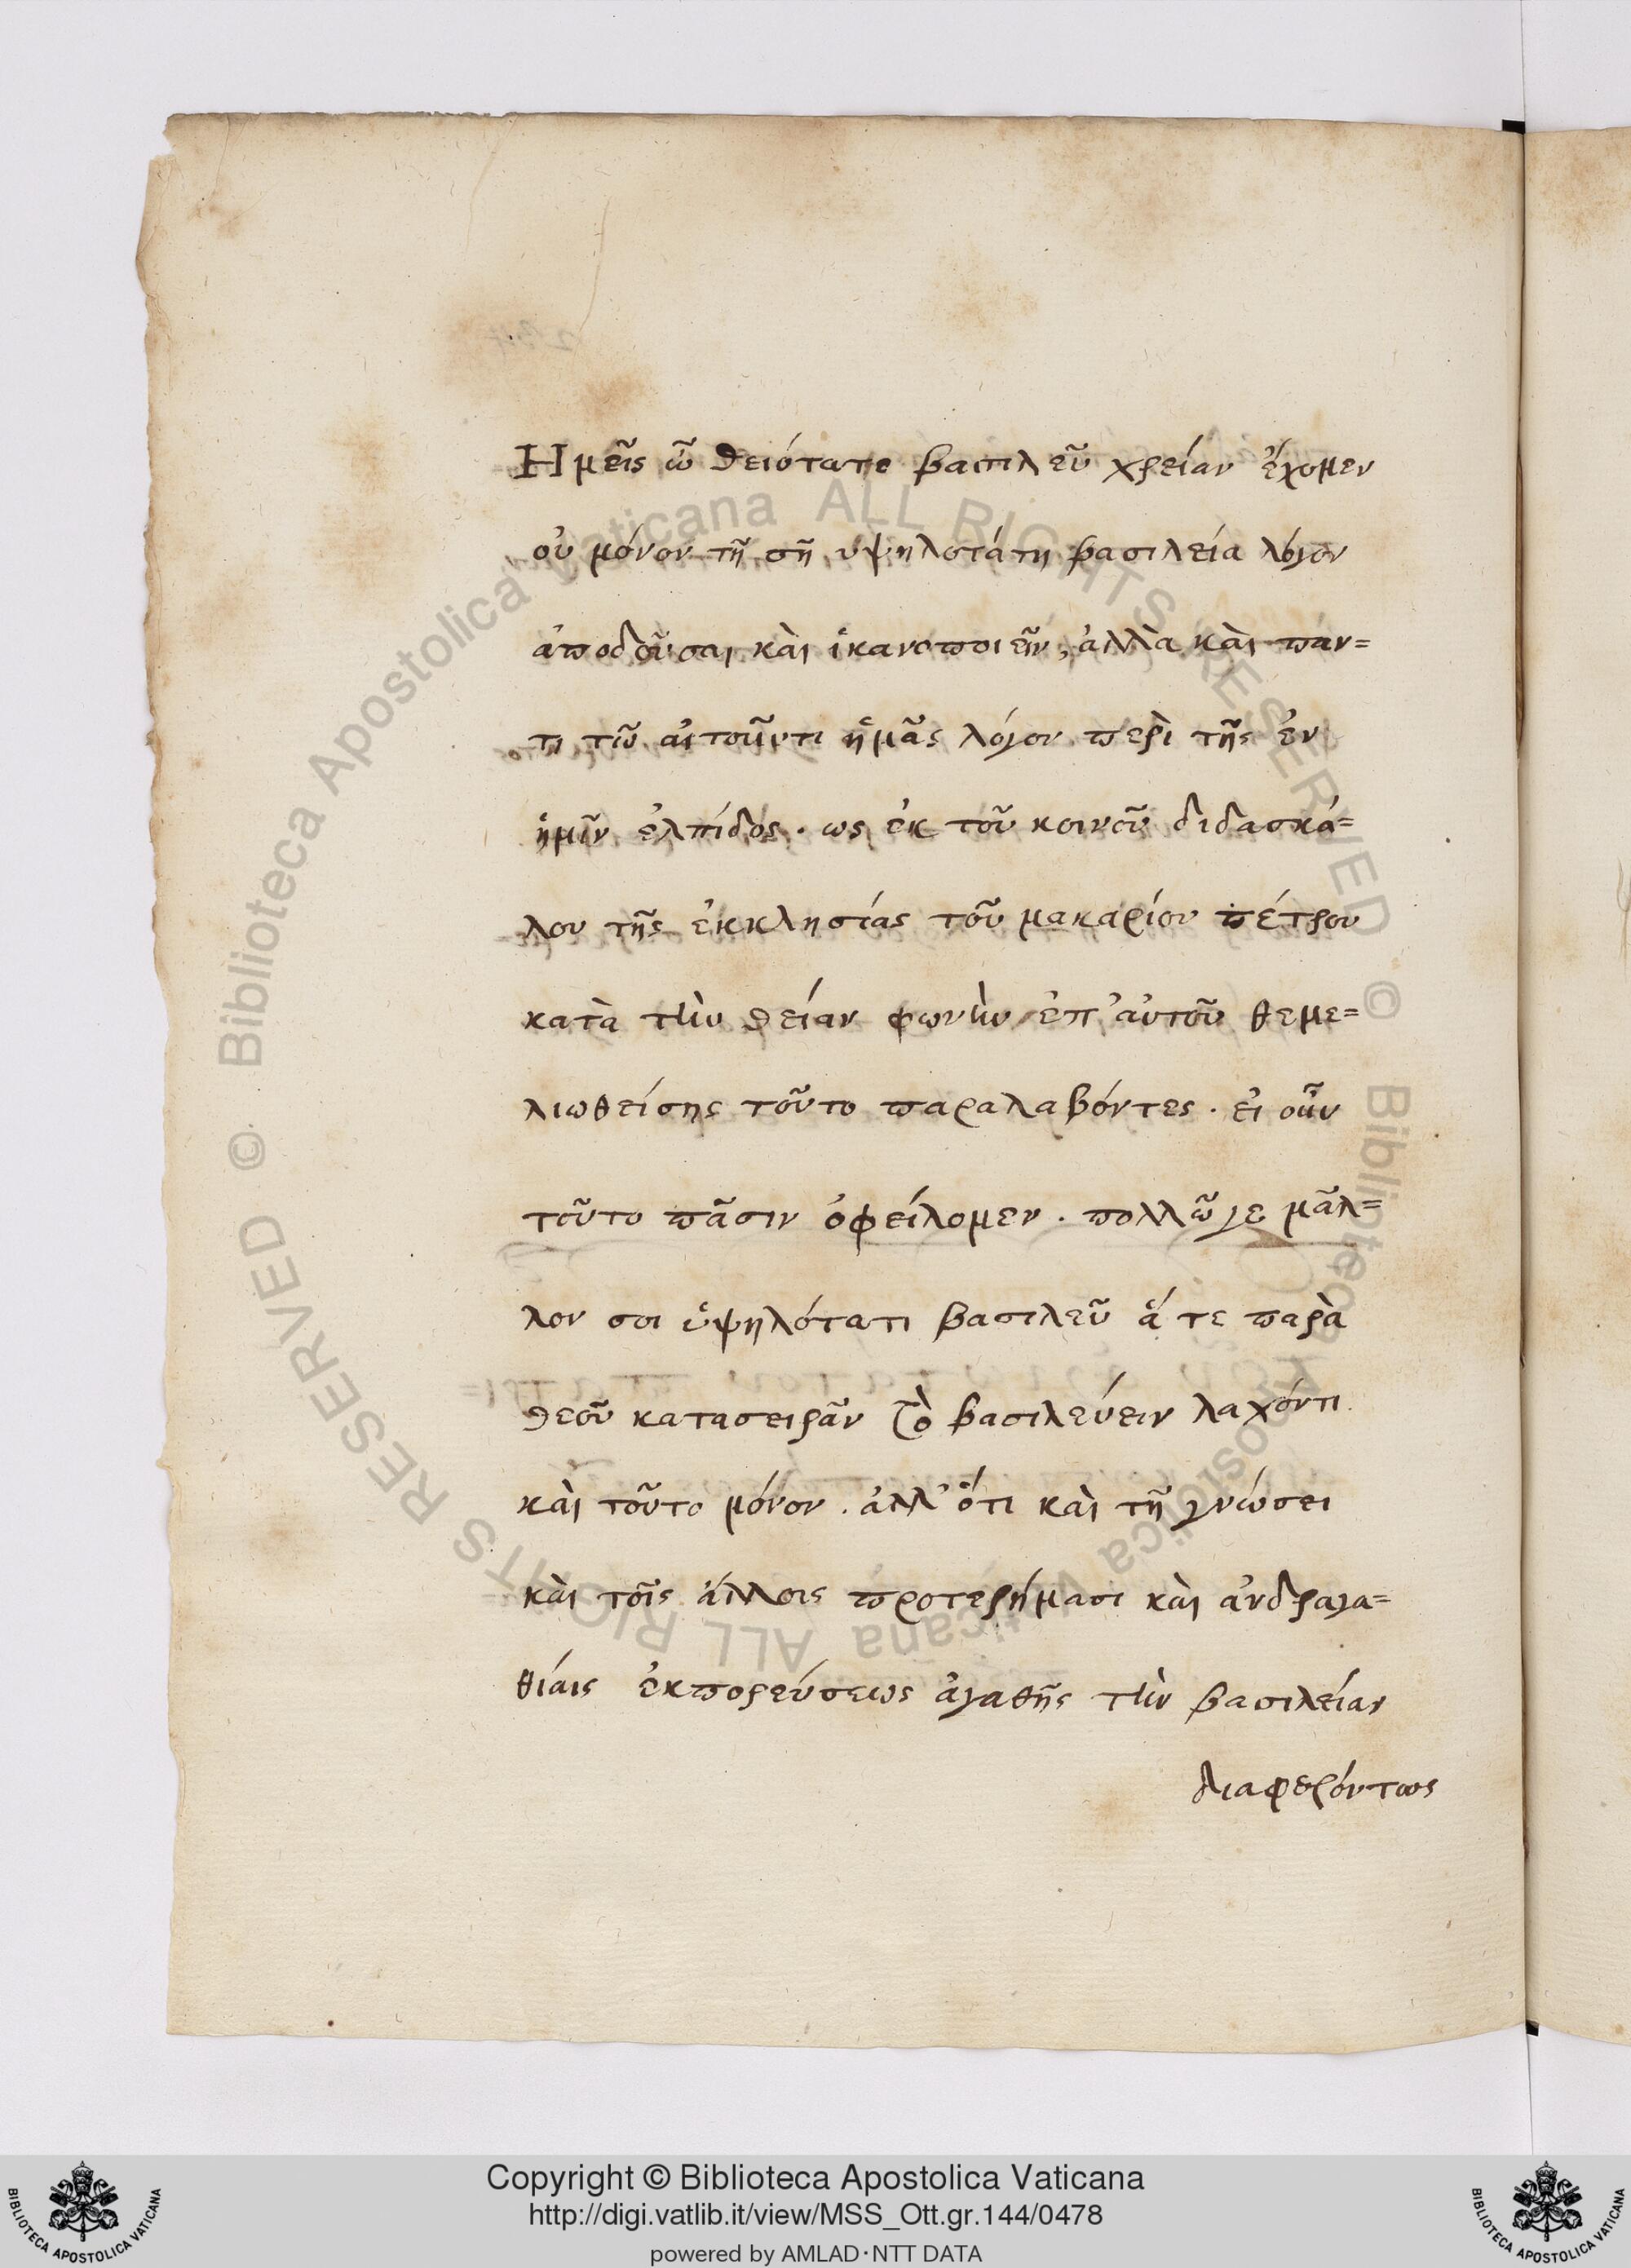 Ημεῖς ὦ θειότατε βασιλεῦ χρείαν ἔχομεν
οὐ μόνον τῆ σῆ ὑψηλοτάτη βασιλεία λόγον
ἀποδοῦσαι κὰι ἱκανοποιεῖν, ἀλλὰ κὰι παν=
τι τῶ αἰτοῦντι ἡμᾶς λόγον περὶ τῆς ἐν
ἡμῖν ἐλπίδος . ως ἐκ τοῦ κοινοῦ διδασκά=
λου τῆς ἐκκλησίας τοῦ μακαρίου πέτρου
κατὰ τὴν θείαν φωνὴν ἐπ' ἀυτοῦ θεμε=
λιωθείσης τοῦτο παραλαβόντες . ἐι οὖν
τοῦτο πᾶσιν ὀφείλομεν . πολλῶ γε μᾶλ=
λον σοι ὑψηλότατι βασιλεῦ ἅ τε παρὰ
θεοῦ κατασειρᾶν τὸ βασιλεύειν λαχόντι .
κὰι τοῦτο μόνον . ἀλλ' ὅτι κὰι τῆ γνώσει
κὰι τοῖς ἄλλοις προτερήμασι κὰι ἀνδραγα=
θίαις ἐκπορεύσεως ἀγαθῆς τὴν βασιλείαν
διαφερόντως
Biblioteca Apostolica Vaticana ALL RIGHTS RESERVED © Biblioteca Apostolica Vaticana ALL RIGHTS RESERVED ©
Copyright © Biblioteca Apostolica Vaticana
http://digi.vatlib.it/view/MSS_Ott.gr.144/0478
powered by AMLAD·NTT DATA
BIBLIOTECA APOSTOLICA VATICANA
BIBLIOTECA APOSTOLICA VATICANA